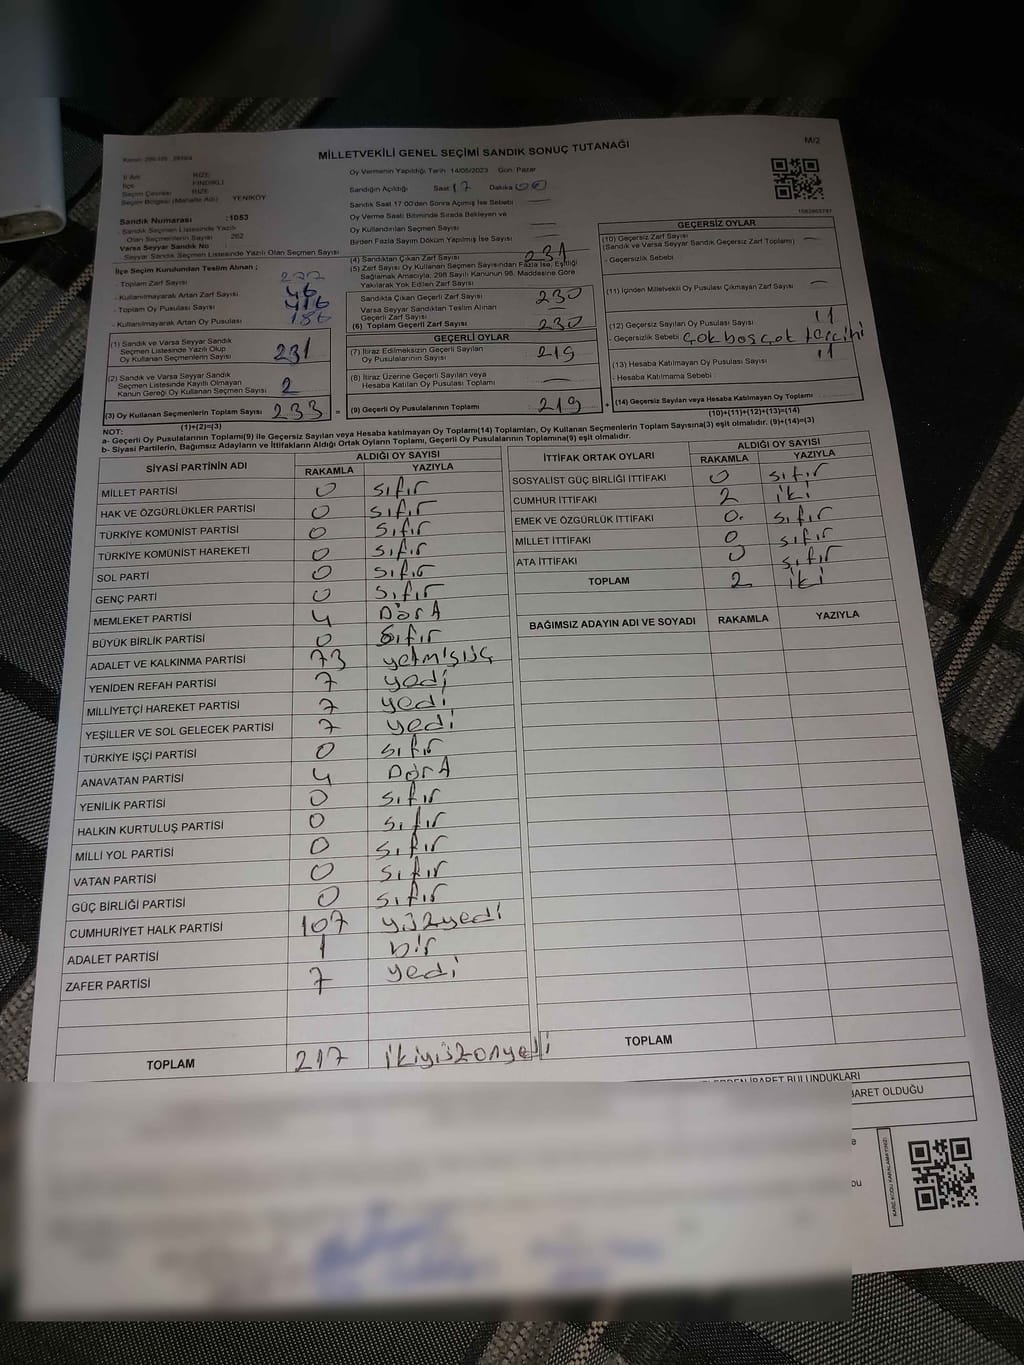 MİLLETVEKİLİ GENEL SEÇİMİ SANDIK SONUÇ TUTANAĞI
M/2
İl Adı RİZE
İlçe FINDIKLI
Seçim Çevresi RİZE
Seçim Bölgesi (Mahalle Adı) YENİKÖY
Sandık Numarası :1053
- Sandık Seçmen Listesinde Yazılı
Olan Seçmenlerin Sayısı 262
Varsa Seyyar Sandık No
Seyyar Sandık Seçmen Listesinde Yazılı Olan Seçmen Sayısı
Oy Vermenin Yapıldığı Tarih 14/05/2023 Gün: Pazar
Sandığın Açıldığı Saat 17 Dakika 00
Sandık Saat 17:00'den Sonra Açılmış İse Sebebi
Oy Verme Saati Bitiminde Sırada Bekleyen ve
Oy Kullandırılan Seçmen Sayısı
Birden Fazla Sayım Döküm Yapılmış İse Sayısı
İlçe Seçim Kurulundan Teslim Alınan ;
- Toplam Zarf Sayısı
- Kullanılmayarak Artan Zarf Sayısı 46
- Toplam Oy Pusulası Sayısı 416
- Kullanılmayarak Artan Oy Pusulası 186
(1) Sandık ve Varsa Seyyar Sandık
Seçmen Listesinde Yazılı Olup
Oy Kullanan Seçmenlerin Sayısı 231
(2) Sandık ve Varsa Seyyar Sandık
Seçmen Listesinde Kayıtlı Olmayan
Kanun Gereği Oy Kullanan Seçmen Sayısı 2
(3) Oy Kullanan Seçmenlerin Toplam Sayısı 233 =
(1)+(2)=(3)
(4) Sandıktan Çıkan Zarf Sayısı 231
(5) Zarf Sayısı Oy Kullanan Seçmen Sayısından Fazla İse, Eşitliği
Sağlamak Amacıyla, 298 Sayılı Kanunun 98. Maddesine Göre
Yakılarak Yok Edilen Zarf Sayısı
Sandıkta Çıkan Geçerli Zarf Sayısı 230
Varsa Seyyar Sandıktan Teslim Alınan
Geçerli Zarf Sayısı
(6) Toplam Geçerli Zarf Sayısı 230
GEÇERLİ OYLAR
(7) İtiraz Edilmeksizin Geçerli Sayılan
Oy Pusulalarının Sayısı 219
(8) İtiraz Üzerine Geçerli Sayılan veya
Hesaba Katılan Oy Pusulası Toplamı —
(9) Geçerli Oy Pusulalarının Toplamı 219 +
GEÇERSİZ OYLAR
(10) Geçersiz Zarf Sayısı
(Sandık ve Varsa Seyyar Sandık Geçersiz Zarf Toplamı) —
- Geçersizlik Sebebi
(11) İçinden Milletvekili Oy Pusulası Çıkmayan Zarf Sayısı —
(12) Geçersiz Sayılan Oy Pusulası Sayısı 11
- Geçersizlik Sebebi çok boş çok tercihi
(13) Hesaba Katılmayan Oy Pusulası Sayısı 11
- Hesaba Katılmama Sebebi :
(14) Geçersiz Sayılan veya Hesaba Katılmayan Oy Toplamı
(10)+(11)+(12)+(13)=(14)
NOT:
a- Geçerli Oy Pusulaları Toplamı(9) ile Geçersiz Sayılan veya Hesaba katılmayan Oy Toplamı(14) Toplamları, Oy Kullanan Seçmenlerin Toplam Sayısına(3) eşit olmalıdır. (9)+(14)=(3)
b- Siyasi Partilerin, Bağımsız Adayların ve İttifakların Aldığı Ortak Oyların Toplamı, Geçerli Oy Pusulalarının Toplamına(9) eşit olmalıdır.
SİYASİ PARTİNİN ADI ALDIĞI OY SAYISI
RAKAMLA YAZIYLA
MİLLET PARTİSİ 0 sıfır
HAK VE ÖZGÜRLÜKLER PARTİSİ 0 sıfır
TÜRKİYE KOMÜNİST PARTİSİ 0 sıfır
TÜRKİYE KOMÜNİST HAREKETİ 0 sıfır
SOL PARTİ 0 sıfır
GENÇ PARTİ 0 sıfır
MEMLEKET PARTİSİ 4 Dört
BÜYÜK BİRLİK PARTİSİ 0 sıfır
ADALET VE KALKINMA PARTİSİ 73 yetmişüç
YENİDEN REFAH PARTİSİ 7 yedi
MİLLİYETÇİ HAREKET PARTİSİ 7 yedi
YEŞİLLER VE SOL GELECEK PARTİSİ 7 yedi
TÜRKİYE İŞÇİ PARTİSİ 0 sıfır
ANAVATAN PARTİSİ 4 Dört
YENİLİK PARTİSİ 0 sıfır
HALKIN KURTULUŞ PARTİSİ 0 sıfır
MİLLİ YOL PARTİSİ 0 sıfır
VATAN PARTİSİ 0 sıfır
GÜÇ BİRLİĞİ PARTİSİ 0 sıfır
CUMHURİYET HALK PARTİSİ 107 yüzyedi
ADALET PARTİSİ 1 bir
ZAFER PARTİSİ 7 yedi
TOPLAM 217 ikiyüzonyedi
İTTİFAK ORTAK OYLARI ALDIĞI OY SAYISI
RAKAMLA YAZIYLA
SOSYALİST GÜÇ BİRLİĞİ İTTİFAKI 0 sıfır
CUMHUR İTTİFAKI 2 iki
EMEK VE ÖZGÜRLÜK İTTİFAKI 0. sıfır
MİLLET İTTİFAKI 0 sıfır
ATA İTTİFAKI 0 sıfır
TOPLAM 2 iki
BAĞIMSIZ ADAYIN ADI VE SOYADI RAKAMLA YAZIYLA
TOPLAM
İBARET BULUNDUKLARI
BARET OLDUĞU
KARE KODU KARALAMAYINIZ!